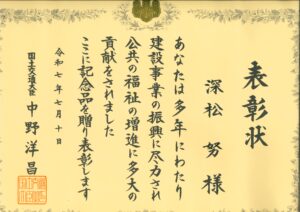 表彰状
深松 努 様
あなたは多年にわたり
建設事業の振興に尽力され
公共の福祉の増進に多大の
貢献をされました
ここに記念品を贈り表彰します
令和七年七月十日
国土交通大臣 中野洋昌